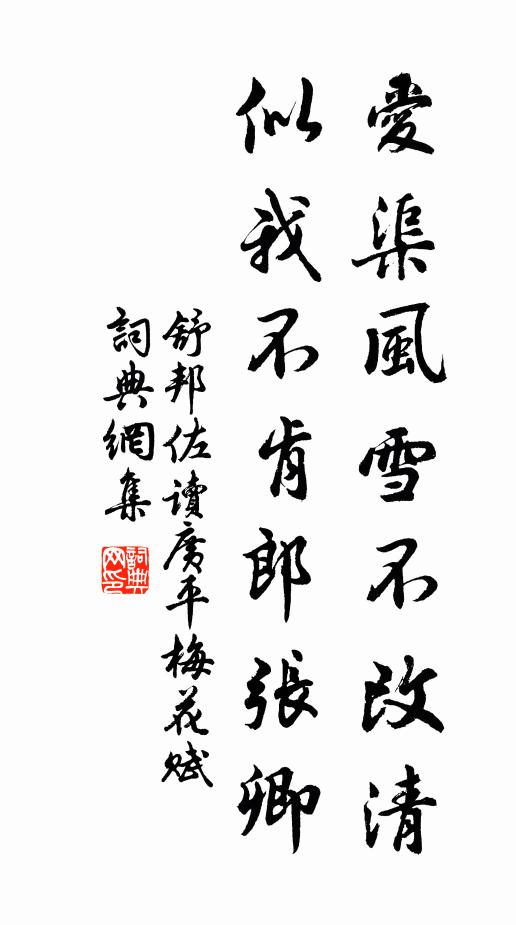 愛渠風雪不改清
似我不肯郎張卿
舒邦佐讀廣平梅花賦
詞典網集
詞典網印